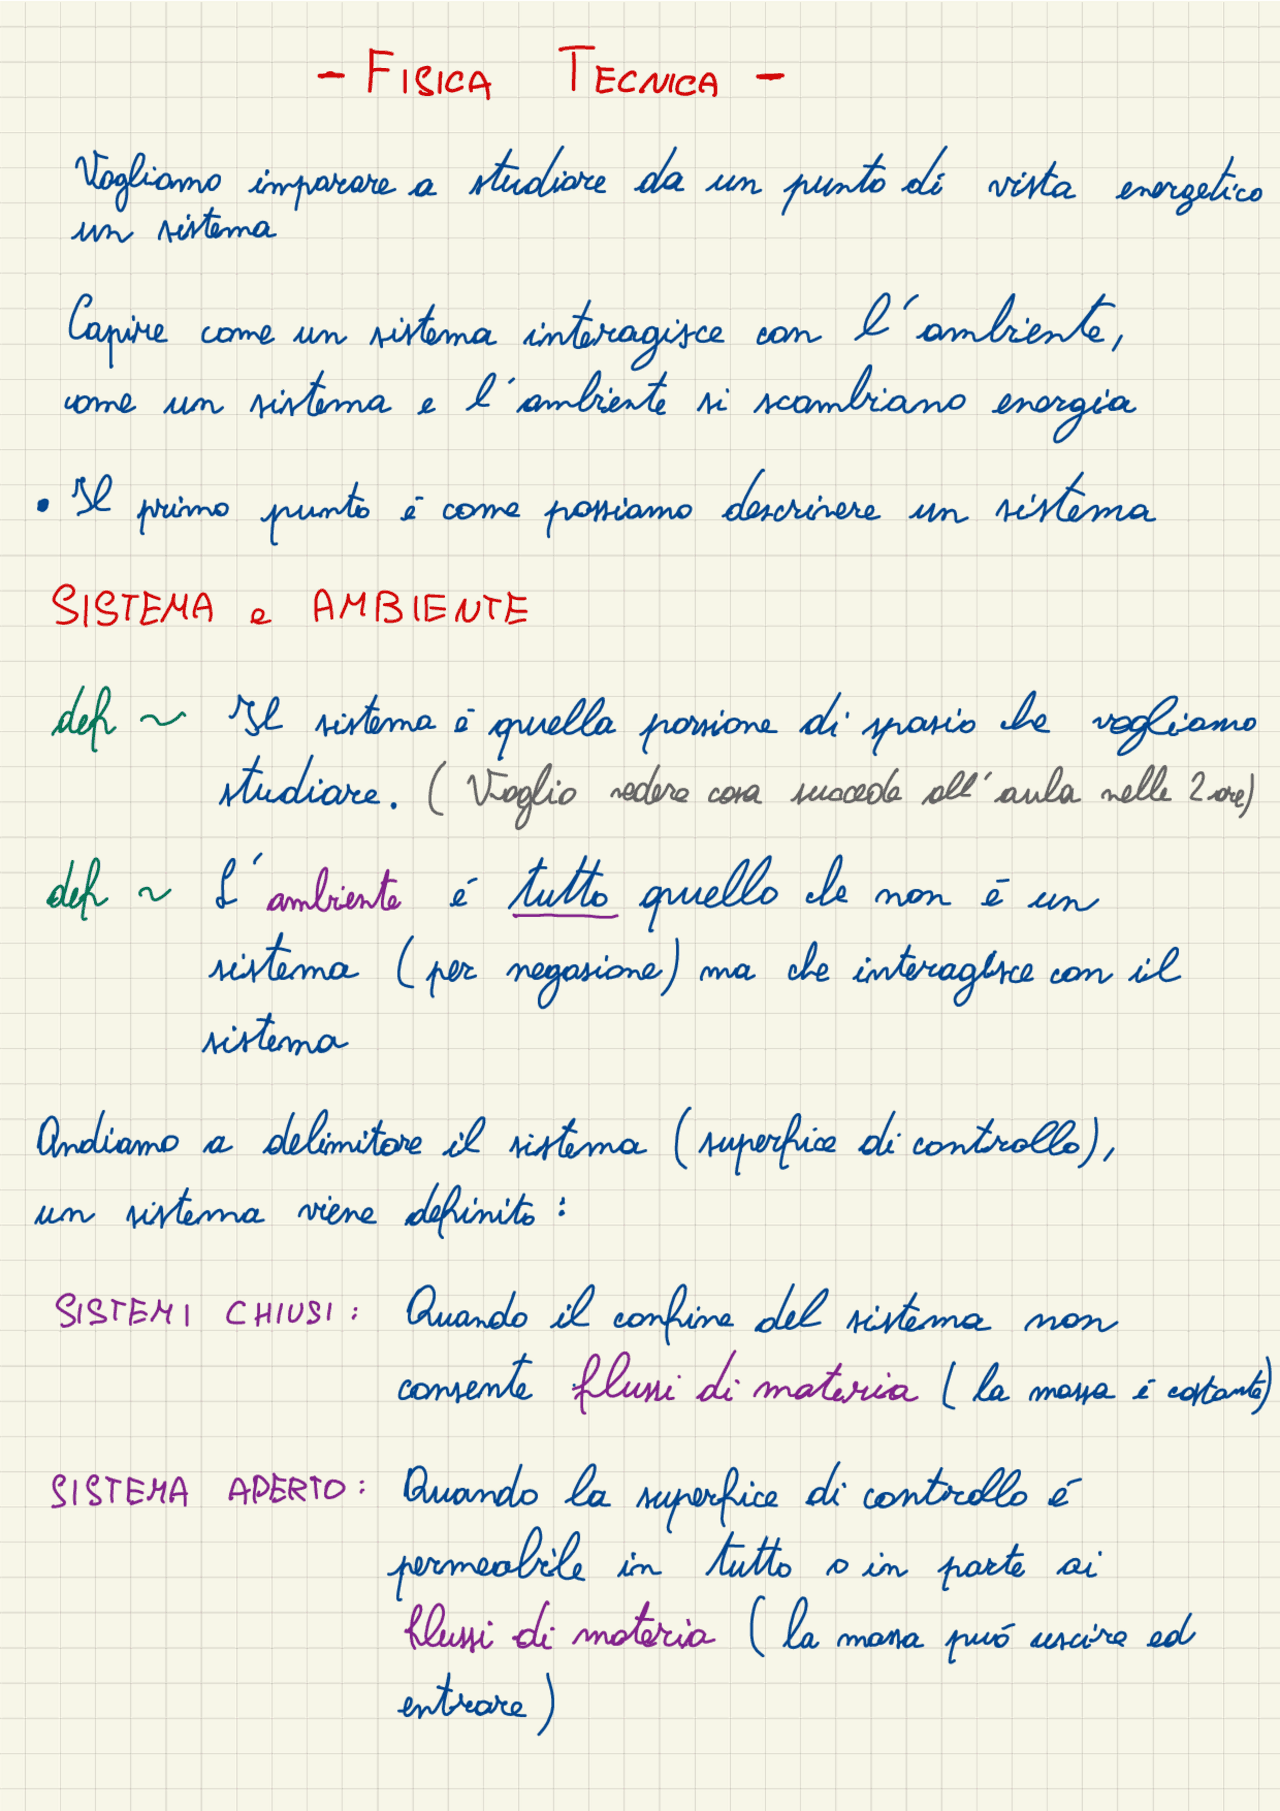 - FISICA TECNICA -
Vogliamo imparare a studiare da un punto di vista energetico
un sistema
Capire come un sistema interagisce con l'ambiente,
come un sistema e l'ambiente si scambiano energia
• Il primo punto é come possiamo descrivere un sistema
SISTEMA e AMBIENTE
def ~ Il sistema é quella porzione di spazio che vogliamo
studiare. (Voglio vedere cosa succede all'aula nelle 2 ore)
def ~ L'ambiente é tutto quello che non é un
sistema (per negazione) ma che interagisce con il
sistema
Andiamo a delimitare il sistema (superfice di controllo),
un sistema viene definito:
SISTEMI CHIUSI: Quando il confine del sistema non
consente flussi di materia (la massa é costante)
SISTEMA APERTO: Quando la superfice di controllo é
permeabile in tutto o in parte ai
flussi di materia (la massa puó uscire ed
entrare)